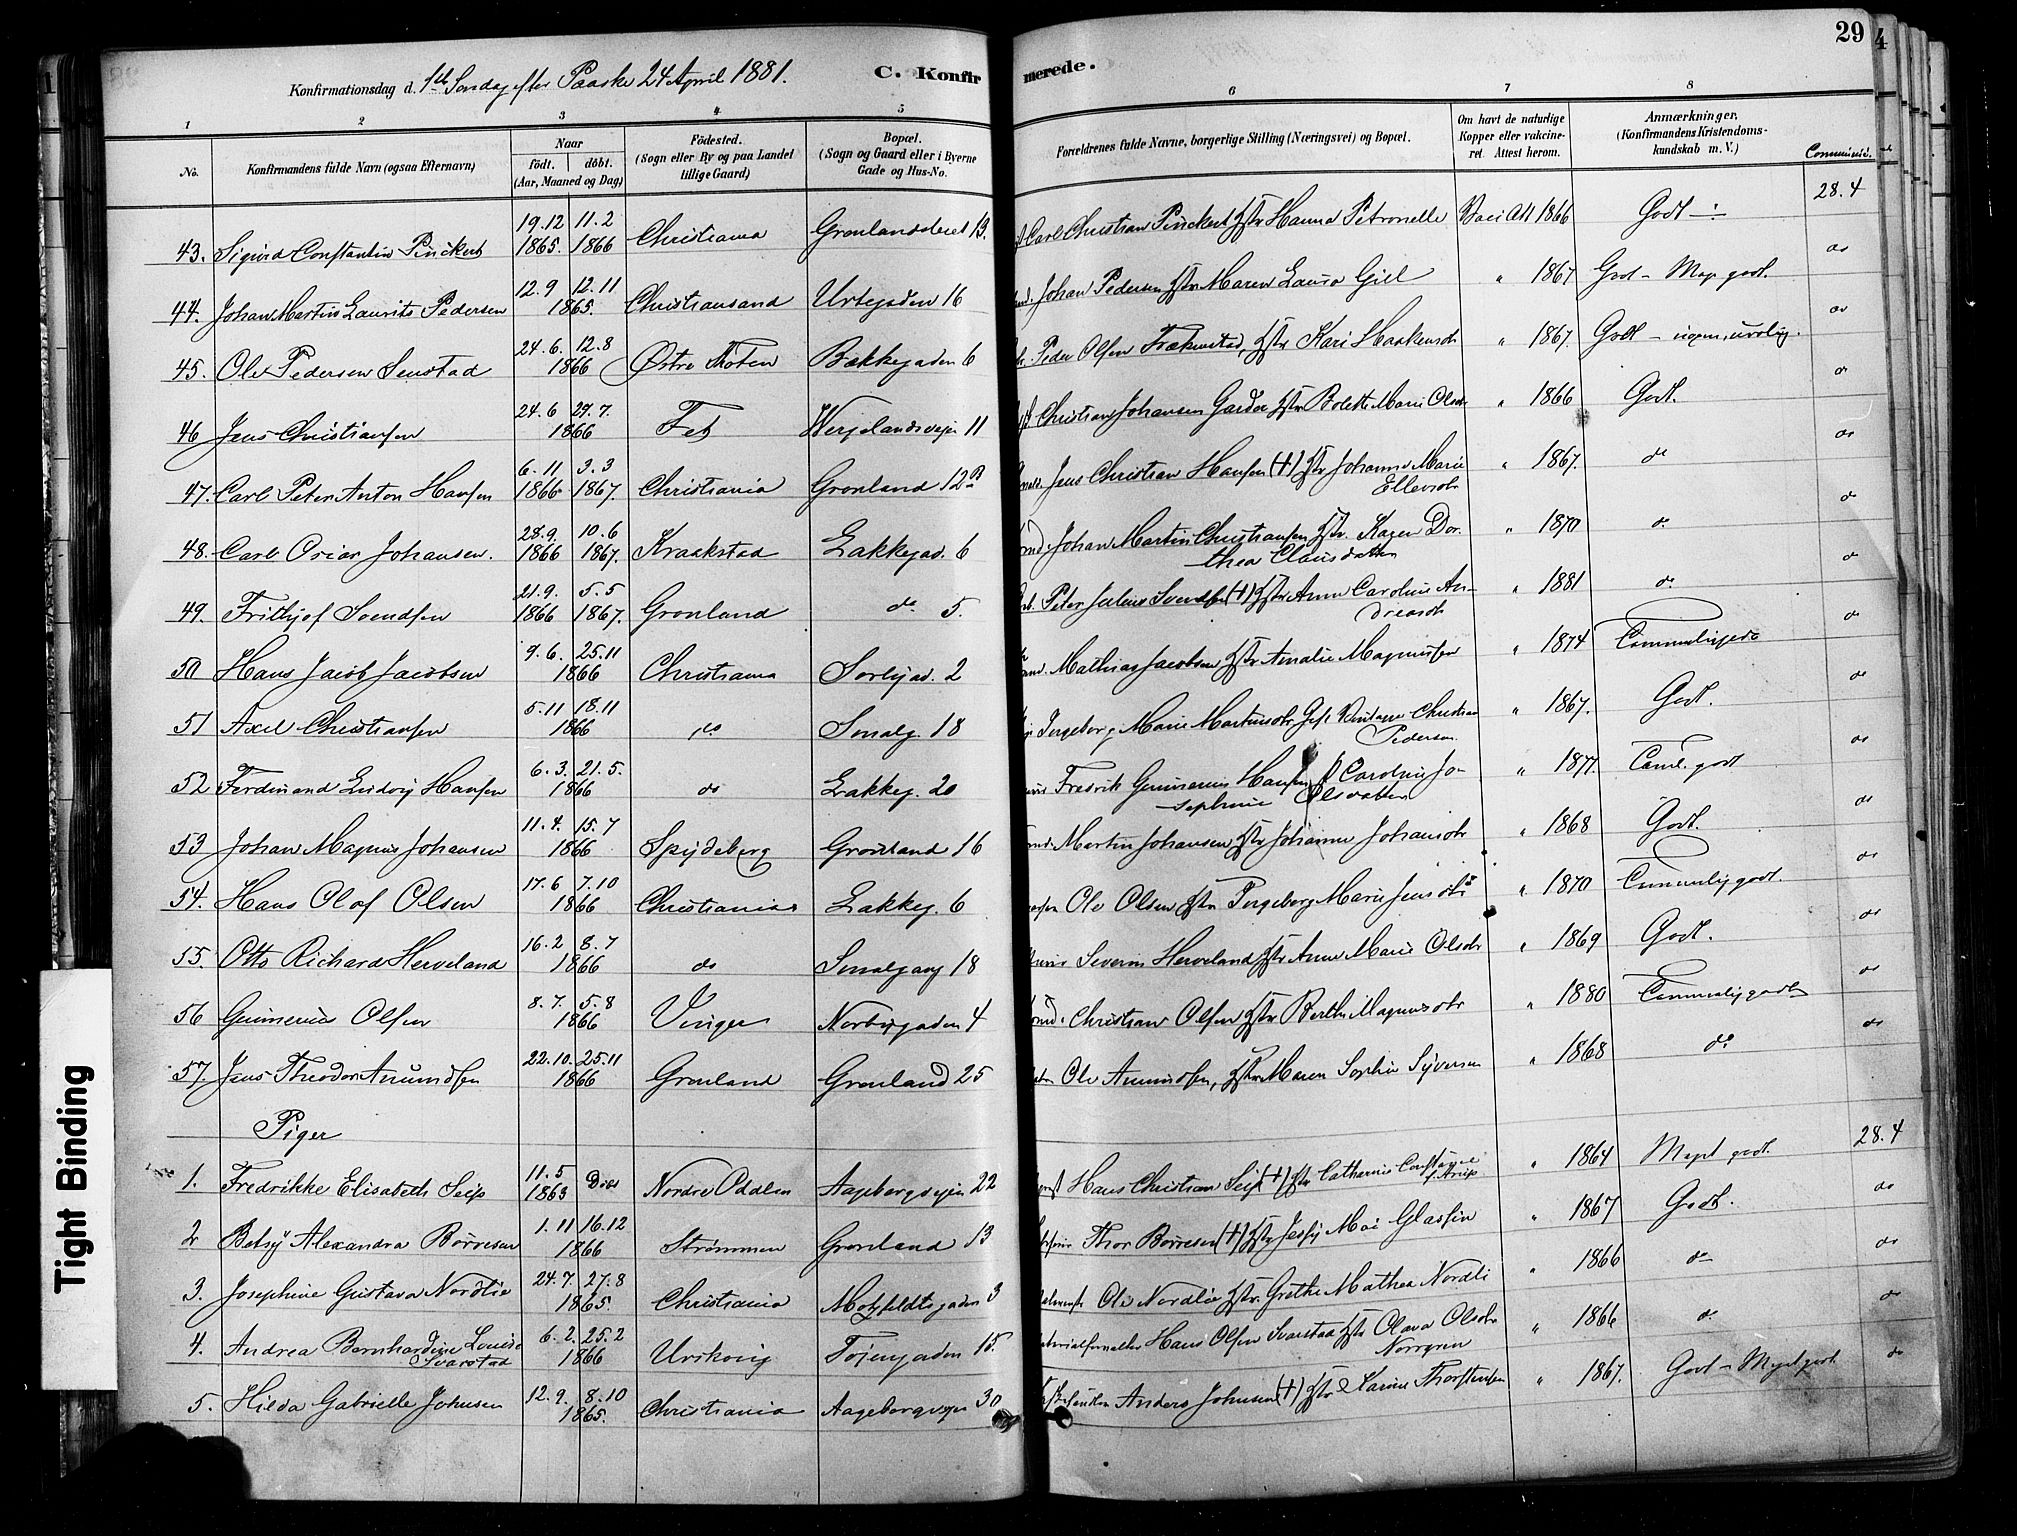 29
4
Konfirmationsdag d. 1ste Søndag efter Paaske 24 April 1881.
C. Konfirmerede.
1 2 3 4 5 6 7 8
No.
Konfirmandens fulde Navn (ogsaa Efternavn)
Naar
födt. döbt.
(Aar, Maaned og Dag)
Födested.
(Sogn eller By og paa Landet tillige Gaard)
Bopæl.
(Sogn og Gaard eller i Byerne Gade og Hus-No.
Forældrenes fulde Navne, borgerlige Stilling (Næringsvei) og Bopæl.
Om havt de naturlige Kopper eller vakcineret. Attest herom.
Anmærkninger.
(Konfirmandens Kristendomskundskab m. V.)
28.4
43. Sigurd Constantin Pinckert 19.12 1865. 11.2 1866 Christiania Grønlandsleret 13. Carl Christian Pinckert Hstr Hanna Petronelle Vacc Att 1866 Godt
44. Johan Martin Laurits Pedersen 12.9 12.11 1865. Christiansand Urtegaden 16 Johan Pedersen Hstr Maren Laura Gill " 1867 Godt - Meget godt. do
45. Ole Pedersen Senstad 24.6. 12.8 1866 Østre Thoten Bakkegaden 6 Peder Olsen Hstr Kari Haakensdtr " 1867. Godt do
46 Jens Christiansen 24.6 29.7. 1866 Fet Wergelandsveien 11 Christian Johansen Hstr Bolette Marie Olsdtr " 1866 Godt. do
47. Carl Peter Anton Hansen 6.11 1866 3.3 1867. Christiania Grønland 12B Jens Christian Hansen (+) Hstr Johanne Marie Ellevsdtr " 1867. do do
48. Carl Oscar Johansen. 28.9. 1866 10.6 1867. Kraakstad Lakkegad. 6 Johan Martin Christiansen Hstr. Karen Dorthea Clausdatter " 1870 do do
49. Frithjof Svendsen 21.9. 1866 5.5 1867. Grønland do 5. Peter Julius Svendsen (+) Hstr Anne Caroline Andreasdtr " 1881 do do
50 Hans Jacob Jacobsen 9.6. 25.11 1866 Christiania Sørligad. 2 Mathias Jacobsen Hstr Amalie Magnussen " 1874 do
51 Axel Christiansen 5.11 18.11 1866 do Smalg. 18 Ingeborg Marie Martinsdtr Christian Pedersen " 1867. Godt. do
52 Ferdinand Ludvig Hansen 6.3. 21.5. 1866 do Lakkeg. 20 Fredrik Gunnerius Hansen Caroline Josephine Olsdatter " 1877. godt do
53 Johan Magnus Johansen 11.4. 15.7 1866 Spydeberg Grønland 16 Martin Johansen Hstr Johanne Johansdtr " 1868 Godt. do
54. Hans Olaf Olsen 17.6 7.10 1866 Christiania Lakkeg. 6 Ole Olsen Hstr Ingeborg Marie Jensdtr " 1870 Temmelig godt. do
55. Otto Richard Herveland 16.2 8.7 1866 do Smalgang 18 Severin Herveland Hstr Anne Marie Olsdtr " 1869 Godt. do
56 Gunnerius Olsen 8.7. 5.8 1866 Vinger Norbygaden 4 Christian Olsen Hstr Berthe Magnusdtr " 1880 Temmelig godt do
57. Jens Theodor Amundsen 22.10. 25.11 1866 Grønland Grønland 25 Ole Amundsen, Hstr Maren Sophie Syversen " 1868 do do
Piger
28.4
1. Fredrikke Elisabeth Seip 11.5 1863 Nordre Odalen Aagebergveien 22 Hans Christian Seip (+) Hstr Cathrine Constance " 1864 Meget godt.
2 Betsy Alexandra Børresen 1.11 16.12 1866 Strømmen Grønland 13 Thor Børresen (+) Hstr Jessy Mai Glassin " 1867 Godt. do
3. Josephine Gustava Nordlie 24.7. 27.8 1865. Christiania Motzfeldtsgaden 3 Ole Nordlie Hstr. Grethe Mathea Nordli " 1866 do do
4. Andrea Bernhardine Louise Svarstad 6.2. 25.2 1866 Urskoug Tøiengaden 15. Hans Olsen Svarstad Hstr Olava Olsdtr Norrgren " 1866 do do
5. Hilda Gabrielle Johnsen 12.9. 8.10 1865. Christiania Aagebergveien 30 Anders Johnsen (+) Hstr Karine Thorstensen " 1867. Godt - Meget godt. do
Tight Binding